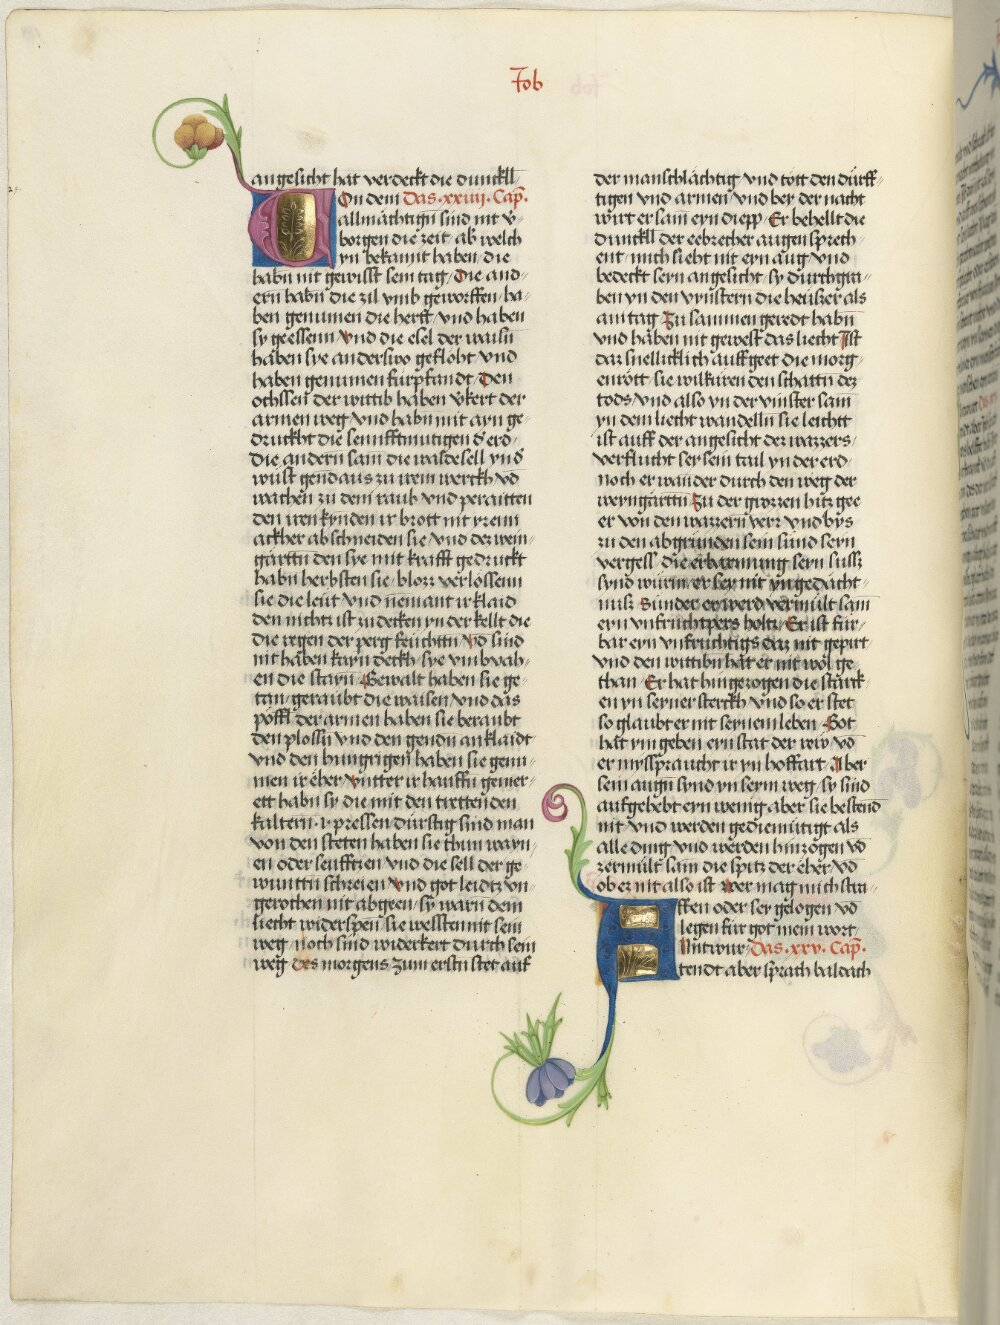 Job
angesicht hat verdeckt die dunckll
On dem Das ·xxiiij· Cap̃.
allmächtign̄ sind nit v̈
borgen die zeit ab welch
yn bekannt haben die
habn̄ nit gewisst sein tag Die and
ern habn̄ die zil vmb geworffen ha
ben genumen die herft vnd haben
sy geessenn vnd die esel der waisn̄
haben sye anderswo geflöht vnd
haben genumen fürpfandt Den
ochssen̄ der wittib haben v̈kert der
armen weg vnd habn̄ mit ayn ge
druckht die sennfftmutigen d̕ erd
Die andern sam die waldesell ynd̕
wüst gend aus zu irem werckh vd̄
wachen zu dem raub vnd peraitten
den iren kynden ir brott nit yr eini
ackher abschneiden sie vnd der wein
gärttn̄ den sye mit krafft gedruckt
habn̄ herbsten sie blozz verlossenn
sie die leüt vnd nemant ir klaid
den nichtz ist zu decken yn der kellt die
die regen der perg feüchttn̄ vd̄ sind
nit haben kayn deckh sye vmbvah
en die stayn Gewalt haben sie ge
tan geraubt die waisen vnd das
pöffl der armen haben sie beraubt
den plossn̄ vnd den gendn̄ an klaidt
vnd den hungrigen haben sie genu
men ir eher vntter ir hauffn̄ gemer
ett habn̄ sy die mit den trettenden
kaltern · v̈pressen dürstig sind man
von den steten haben sie thun wayn
en oder seufftzen vnd die sell der ge
wunttn̄ schreien vnd got leidtz vn
gerochen nit abgeen sy warn dem
liecht widerspen̄ sie wessten nit sein
weg noch sind widerkert durch sein
weg des morgens zum erstn̄ stet auf
der manschlächtig vnd tött den dürff
tigen vnd armen vnd bey der nacht
wirt er sam eyn diepp Er behellt die
dunckll der eebrecher augen sprech
ent mich sieht nit eyn aug vnd
bedeckt seyn angesicht sy durchgra
ben yn den vynstern die heüszer als
am tag Zu sammen geredt habn̄
vnd haben nit gewest das liecht Ist
daz snellicklich auff geet die morg
enrött sie wilkuren den schattn̄ dez
tods vnd also yn der vinster sam
yn dem liecht wandelln̄ sie leichtt
ist auff der angesicht dez wazzers
verflucht sey sein tail yn der erd
noch er wander durch den weg der
weyngarttn̄ Zu der grozzen hitz gee
er von den wazzern̄ verr vnd bys
zu den abgrunden sein sünd seyn
vergess die erbarmung seyn süssz
synd würm er sey nit yn gedächt
nusz Sünder er werd vermült sam
eyn vnfruchtpers holtz Er ist für
bar eyn vnfruchtigs daz nit gepirt
vnd den wittibn̄ hät er nit wol ge
than Er hat hin gezogen die stärk
en yn seyner sterckh vnd so er stet
so glaubt er nit seynem leben Got
hät ym geben eyn stat der rew vd̄
er myssprauicht ir yn hoffart Aber
sein augn̄ synd yn seym weg sy sind
aufgehebt eyn wenig aber sie bestend
nit vnd werden gediemütigt als
alle ding vnd werden hinzogen vd̄
zermült sam die spitz der eher vd̄
ob ez nit also ist wer mag mich stra
ffen oder sey gelogen vd̄
legen für got mein wort
Antwur Das ·xxv· Cap̃.
tendt aber sprach baldach